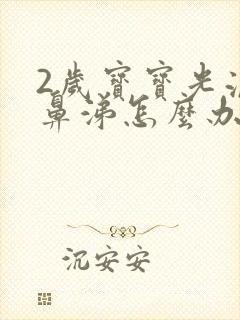 2歲寶寶光流
鼻涕怎麼办
沉安安